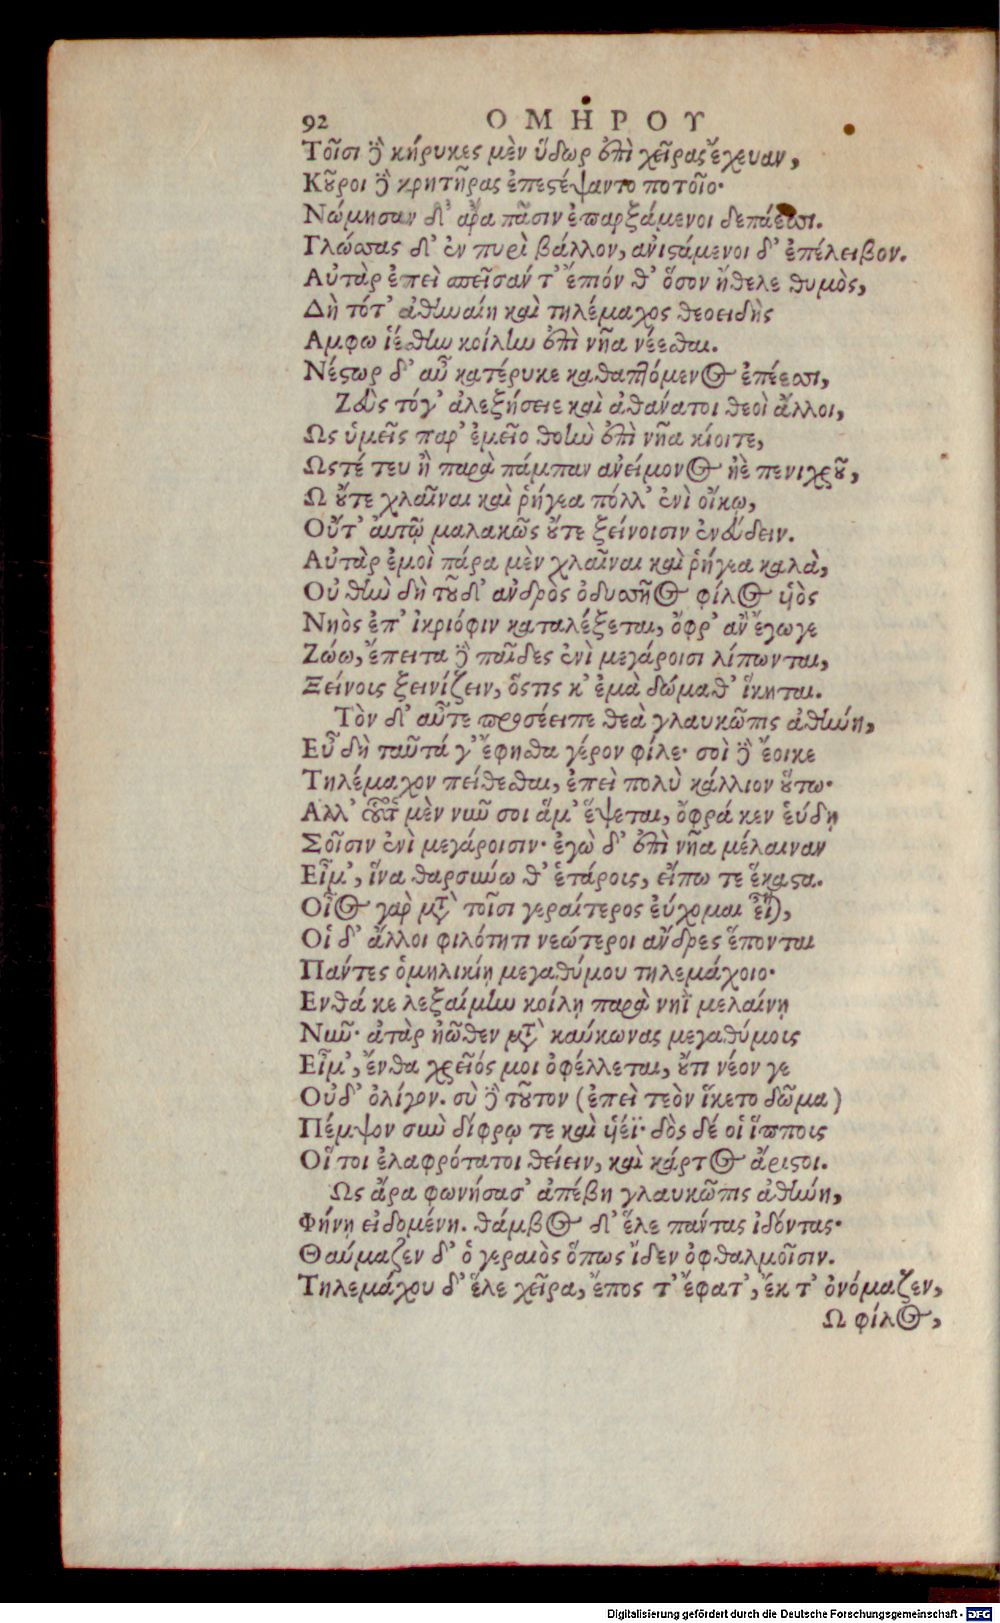 92 ΟΜΗΡΟΥ
Τοῖσι δὲ κήρυκες μὲν ὕδωρ ἐπὶ χεῖρας ἔχευαν,
Κοῦροι δὲ κρητῆρας ἐπεστέψαντο ποτοῖο·
Νώμησαν δ' ἄρα πᾶσιν ἐπαρξάμενοι δεπάεσσι.
Γλώσσας δ' ἐν πυρὶ βάλλον, ἀνιστάμενοι δ' ἐπέλειβον.
Αὐτὰρ ἐπεὶ σπεῖσάν τ' ἔπιόν θ' ὅσον ἤθελε θυμὸς,
Δὴ τότ' ἀθηναίη καὶ τηλέμαχος θεοειδὴς
Αμφω ἱέσθην κοίλην ἐπὶ νῆα νέεσθαι.
Νέστωρ δ' αὖ κατέρυκε καθαπτόμενος ἐπέεσσι,
Ζεὺς τόγ' ἀλεξήσειε καὶ ἀθάνατοι θεοὶ ἄλλοι,
Ως ὑμεῖς παρ' ἐμεῖο θοὴν ἐπὶ νῆα κίοιτε,
Ωστέ τευ ἢ παρὰ πάμπαν ἀνείμονος ἠὲ πενιχροῦ,
Ω οὔτε χλαῖναι καὶ ῥήγεα πόλλ' ἐνὶ οἴκῳ,
Οὔτ' αὐτῷ μαλακῶς οὔτε ξείνοισιν ἐνεύδειν.
Αὐτὰρ ἐμοὶ πάρα μὲν χλαῖναι καὶ ῥήγεα καλὰ,
Οὐ θὴν δὴ τοῦδ' ἀνδρὸς ὀδυσσῆος φίλος υἱὸς
Νηὸς ἐπ' ἰκριόφιν καταλέξεται, ὄφρ' ἂν ἔγωγε
Ζώω, ἔπειτα δὲ παῖδες ἐνὶ μεγάροισι λίπωνται,
Ξείνοις ξεινίζειν, ὅστις κ' ἐμὰ δώμαθ' ἵκηται.
Τὸν δ' αὖτε προσέειπε θεὰ γλαυκῶπις ἀθήνη,
Εὖ δὴ ταῦτά γ' ἔφησθα γέρον φίλε· σοὶ δὲ ἔοικε
Τηλέμαχον πείθεσθαι, ἐπεὶ πολὺ κάλλιον οὕτω·
Αλλ' οὗτος μὲν νῦν σοι ἅμ' ἕψεται, ὄφρά κεν εὕδῃ
Σοῖσιν ἐνὶ μεγάροισιν· ἐγὼ δ' ἐπὶ νῆα μέλαιναν
Εἶμ', ἵνα θαρσύνω θ' ἑτάροις, εἴπω τε ἕκαστα.
Οἶος γὰρ μετὰ τοῖσι γεραίτερος εὔχομαι εἶναι,
Οἱ δ' ἄλλοι φιλότητι νεώτεροι ἄνδρες ἕπονται
Πάντες ὁμηλικίη μεγαθύμου τηλεμάχοιο·
Ενθά κε λεξαίμην κοίλῃ παρὰ νηῒ μελαίνῃ
Νῦν· ἀτὰρ ἠῶθεν μετὰ καύκωνας μεγαθύμοις
Εἶμ', ἔνθα χρεῖός μοι ὀφέλλεται, οὔτι νέον γε
Οὐδ' ὀλίγον. σὺ δὲ τοῦτον (ἐπεὶ τεὸν ἵκετο δῶμα)
Πέμψον σὺν δίφρῳ τε καὶ υἱέϊ· δὸς δέ οἱ ἵπποις
Οἵ τοι ἐλαφρότατοι θείειν, καὶ κάρτος ἄριστοι.
Ως ἄρα φωνήσασ' ἀπέβη γλαυκῶπις ἀθήνη,
Φήνῃ εἰδομένη. θάμβος δ' ἕλε πάντας ἰδόντας·
Θαύμαζεν δ' ὁ γεραιὸς ὅπως ἴδεν ὀφθαλμοῖσιν.
Τηλεμάχου δ' ἕλε χεῖρα, ἔπος τ' ἔφατ', ἔκ τ' ὀνόμαζεν,
Ω φίλος,
Digitalisierung gefördert durch die Deutsche Forschungsgemeinschaft - DFG